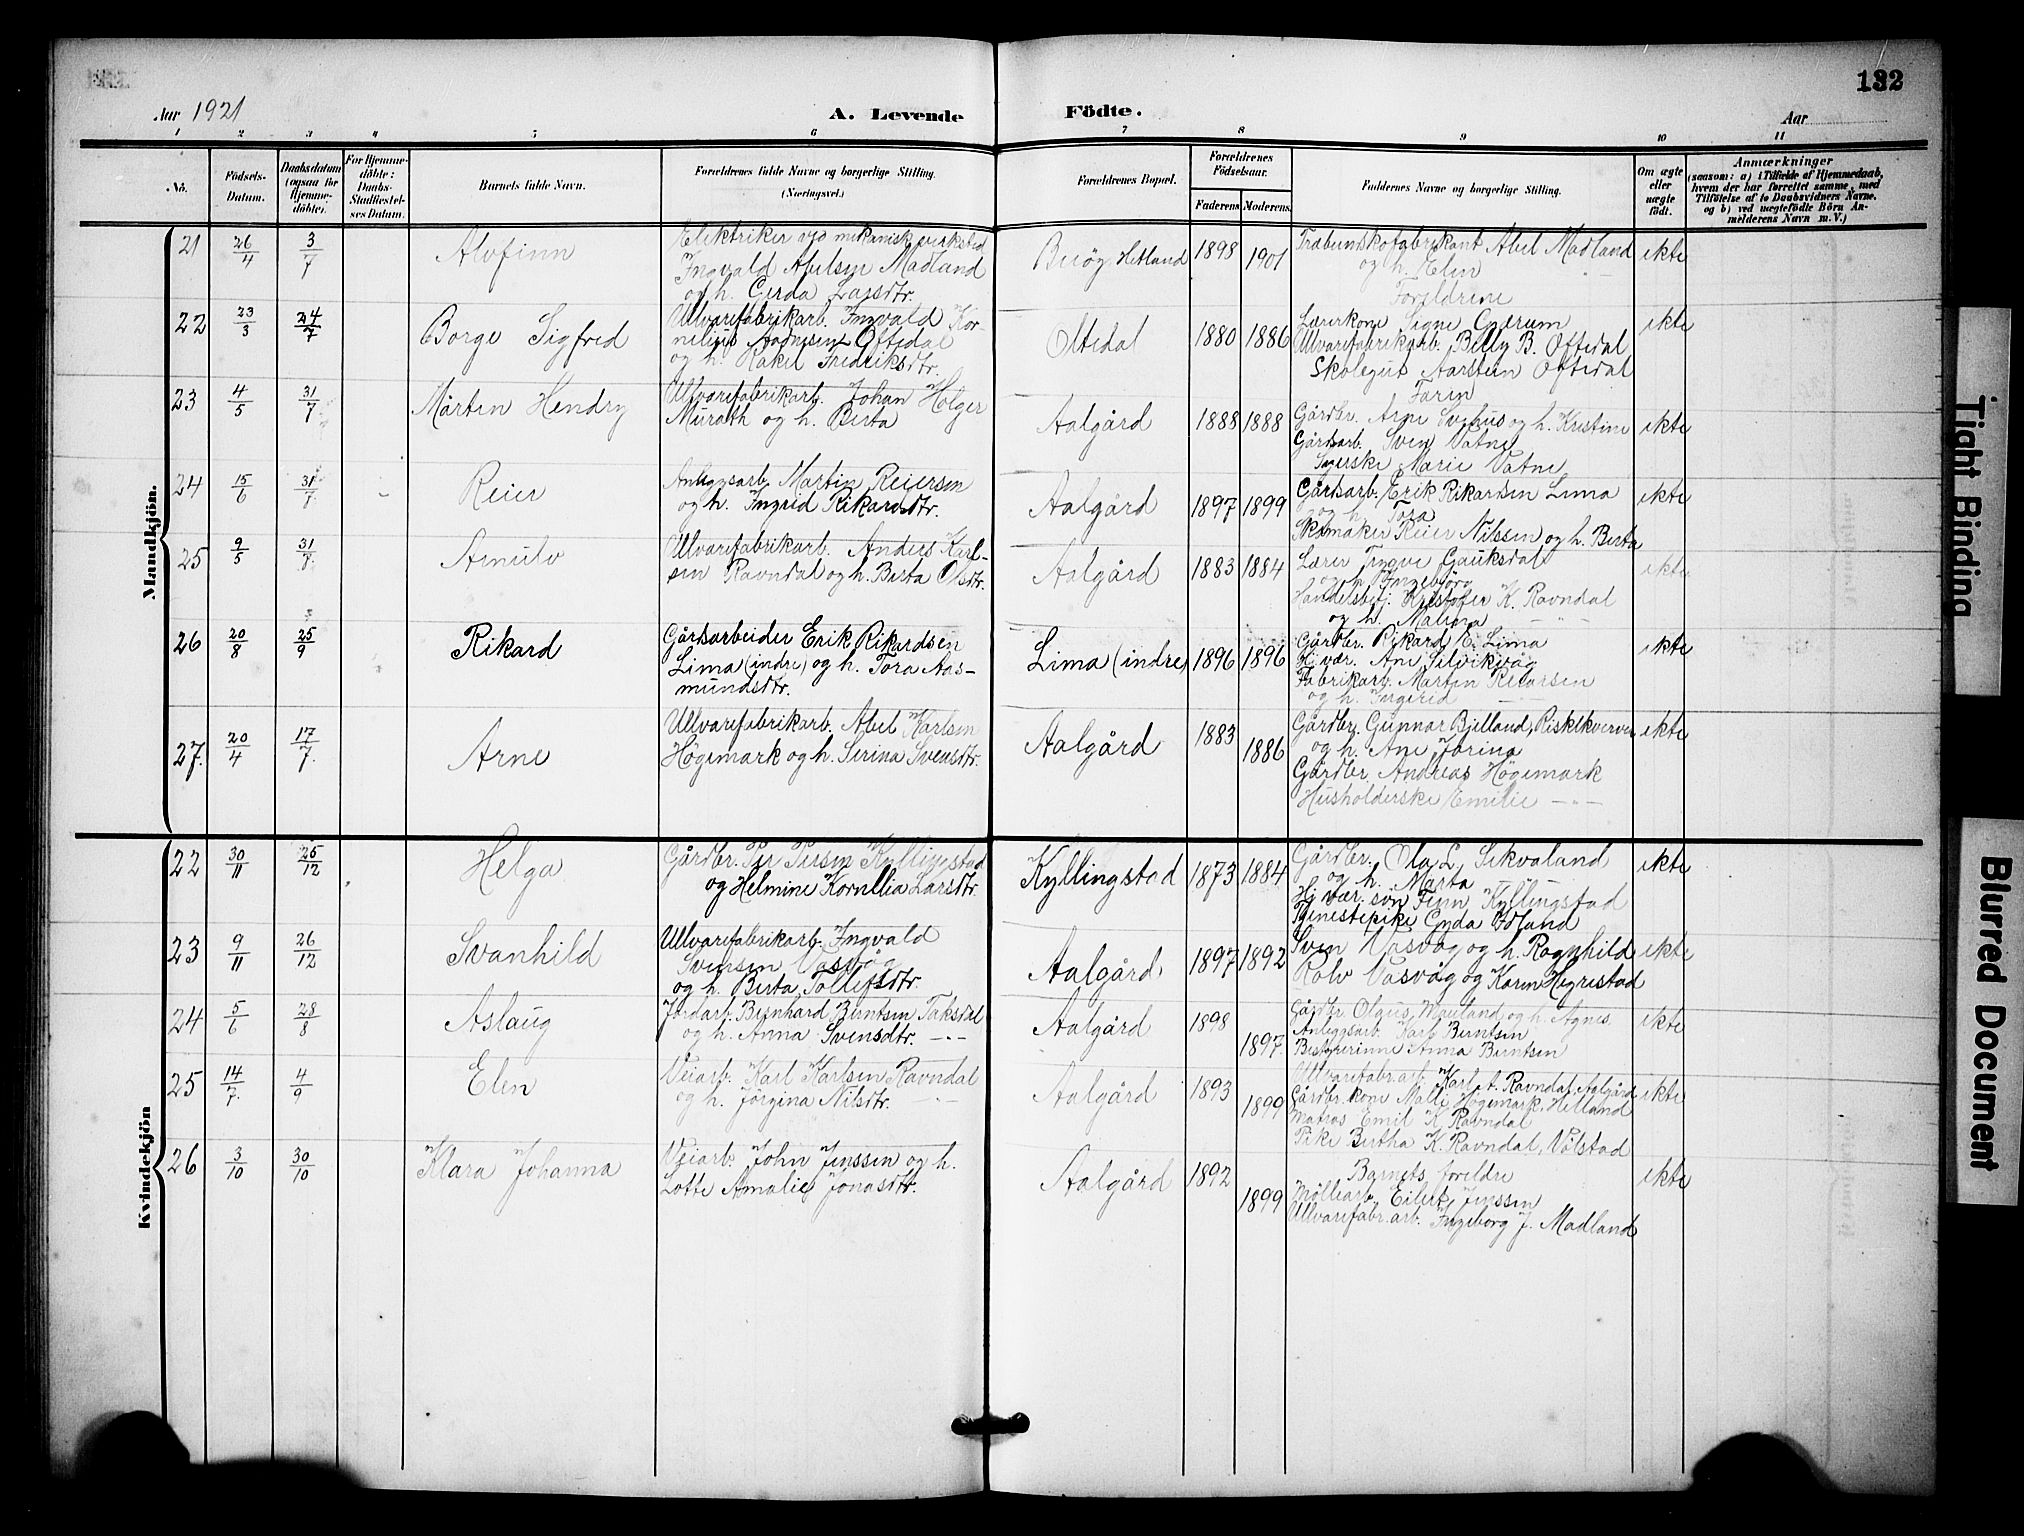 132
Aar 1921
A. Levende Födte.
Aar
1 2 3 4 5 6 7 8 9 10 11
No.
Födsels-Datum.
Daabsdatum (ogsaa for Hjemmedöbte).
For Hjemmedöbte: Daabs-Stadfæstelses Datum.
Barnets fulde Navn.
Forældrenes fulde Navne og borgerlige Stilling. (Næringsvei.)
Forældrenes Bopæl.
Forældrenes Födselsaar.
Faderens Moderens
Faddernes Navne og borgerlige Stilling.
Om ægte eller uægte födt.
Anmærkninger
(saasom: a) i Tilfælde af Hjemmedaab,
hvem der har forrettet samme, med
Tilföielse af to Daabsvidners Navne.
og b) ved uægtefödte Börn An-
melderens Navn m. V.)
Mandkjön.
21 26/4 3/7 Alvfinn
Elektriker ved mekanisk verksted
Ingvald Abelsen Madland
og h. Gerda Larsdtr.
Buöy, Hetland 1898 1901
Træbunnskofabrikant Abel Madland
og h. Elin
Foreldrene
ekte
22 23/3 24/7 Borge Sigfred
Ullvarefabrikarb. Ingvald Kor-
nelius Oftedal
og h. Rakel Fredriksdtr.
Oltedal 1880 1886
Lærerkone Signe Gjærum
Ullvarefabrikarb. Billy B. Oftedal
Skolegut Aarstein Oftedal
Faren
ekte
23 4/5 31/7 Mårten Hendry
Ullvarefabrikarb. Johan Holger
Murath og h. Berta
Aalgård 1888 1888
Gårdbr. Arne Svehus og h. Kristine
Gårdsarb. Sven Vatne
Syerske Marie Vatne
ekte
24 15/6 31/7 Reier
Anleggsarb. Martin Reiersen
og h. Ingrid Rikardsdtr.
Aalgård 1897 1899
Gårdsarb. Erik Rikardsen Lima
og h. Tora
Skomaker Reier Nilssen og h. Berta
ekte
25 9/5 31/7 Arnulv
Ullvarefabrikarb. Anders Karl-
sen Ravndal og h. Berta Olsdtr.
Aalgård 1883 1884
Lærer Tngve Gauksdal
og h. Ingeborg
Handelsbetj. Kristofer K. Ravndal
og h. Malena —"—
ekte
26 20/8 25/9 Rikard
Gårdsarbeider Erik Rikardsen
Lima (indre) og h. Tora Aas-
mundsdtr.
Lima (indre) 1896 1896
Gårdbr. Rikard E. Lima
Hj.vær. Ane Selvikvåg
Fabrikarb. Martin Reiarsen
og h. Ingerid —
ekte
27. 20/4 17/7 Arne
Ullvarefabrikarb. Abel Karlsen
Högemark og h. Serina Svensdtr.
Aalgård 1883 1886
Gårdbr. Gunnar Bjelland, Riskekverven
og h. Ane Jorina
Gårdbr. Andreas Högemark
Husholderske Emilie —"—
ekte
Kvindekjön
22 30/11 25/12 Helga
Gårdbr. Per Persen Kyllingstad
og Helmine Kornelia Larsdtr.
Kyllingstad 1873 1884
Gårdbr. Ola L. Sikvaland
og h. Marta
Hj.vær. sön Finn Kyllingstad
Tjenestepike Gyda Edland
ekte
23 9/11 26/12 Svanhild
Ullvarefabrikarb. Ingvald
Svensen Vasvåg
og h. Berta Tollefsdtr.
Aalgård 1897 1892
Sven Vasvåg og h. Ragnhild
Rolv Vasvåg og Karen Hegrestad
ekte
24 5/6 28/8 Aslaug
Jordarb. Bernhard Berntsen Taksdal
og h. Anna Svensdtr. —"—
Aalgård 1898 1897
Gårdbr. Olaus Mauland og h. Agnes
Anleggsarb. Karl Berntsen
Bestyrerinne Anna Berntsen
ekte
25 14/7 4/9 Elen
Veiarb. Karl Karlsen Ravndal
og h. Jörgina Nilsdtr. —"—
Aalgård 1893 1899
Ullvarefabr.arb. Karl A. Ravndal, Aalgård
Gårdbr.kone Malli Högemark, Hetland
Matros Emil K. Ravndal
Pike Bertha K. Ravndal, Völstad
ekte
26 3/10 30/10 Klara Johanna
Veiarb. John Jenssen og h.
Lotte Amalie Jonasdtr.
Aalgård 1892 1899
Barnets foreldre
Möllearb. Eilert Jenssen
Ullvarefabr.arb. Ingeborg J. Madland
ekte
Tight Binding
Blurred Document